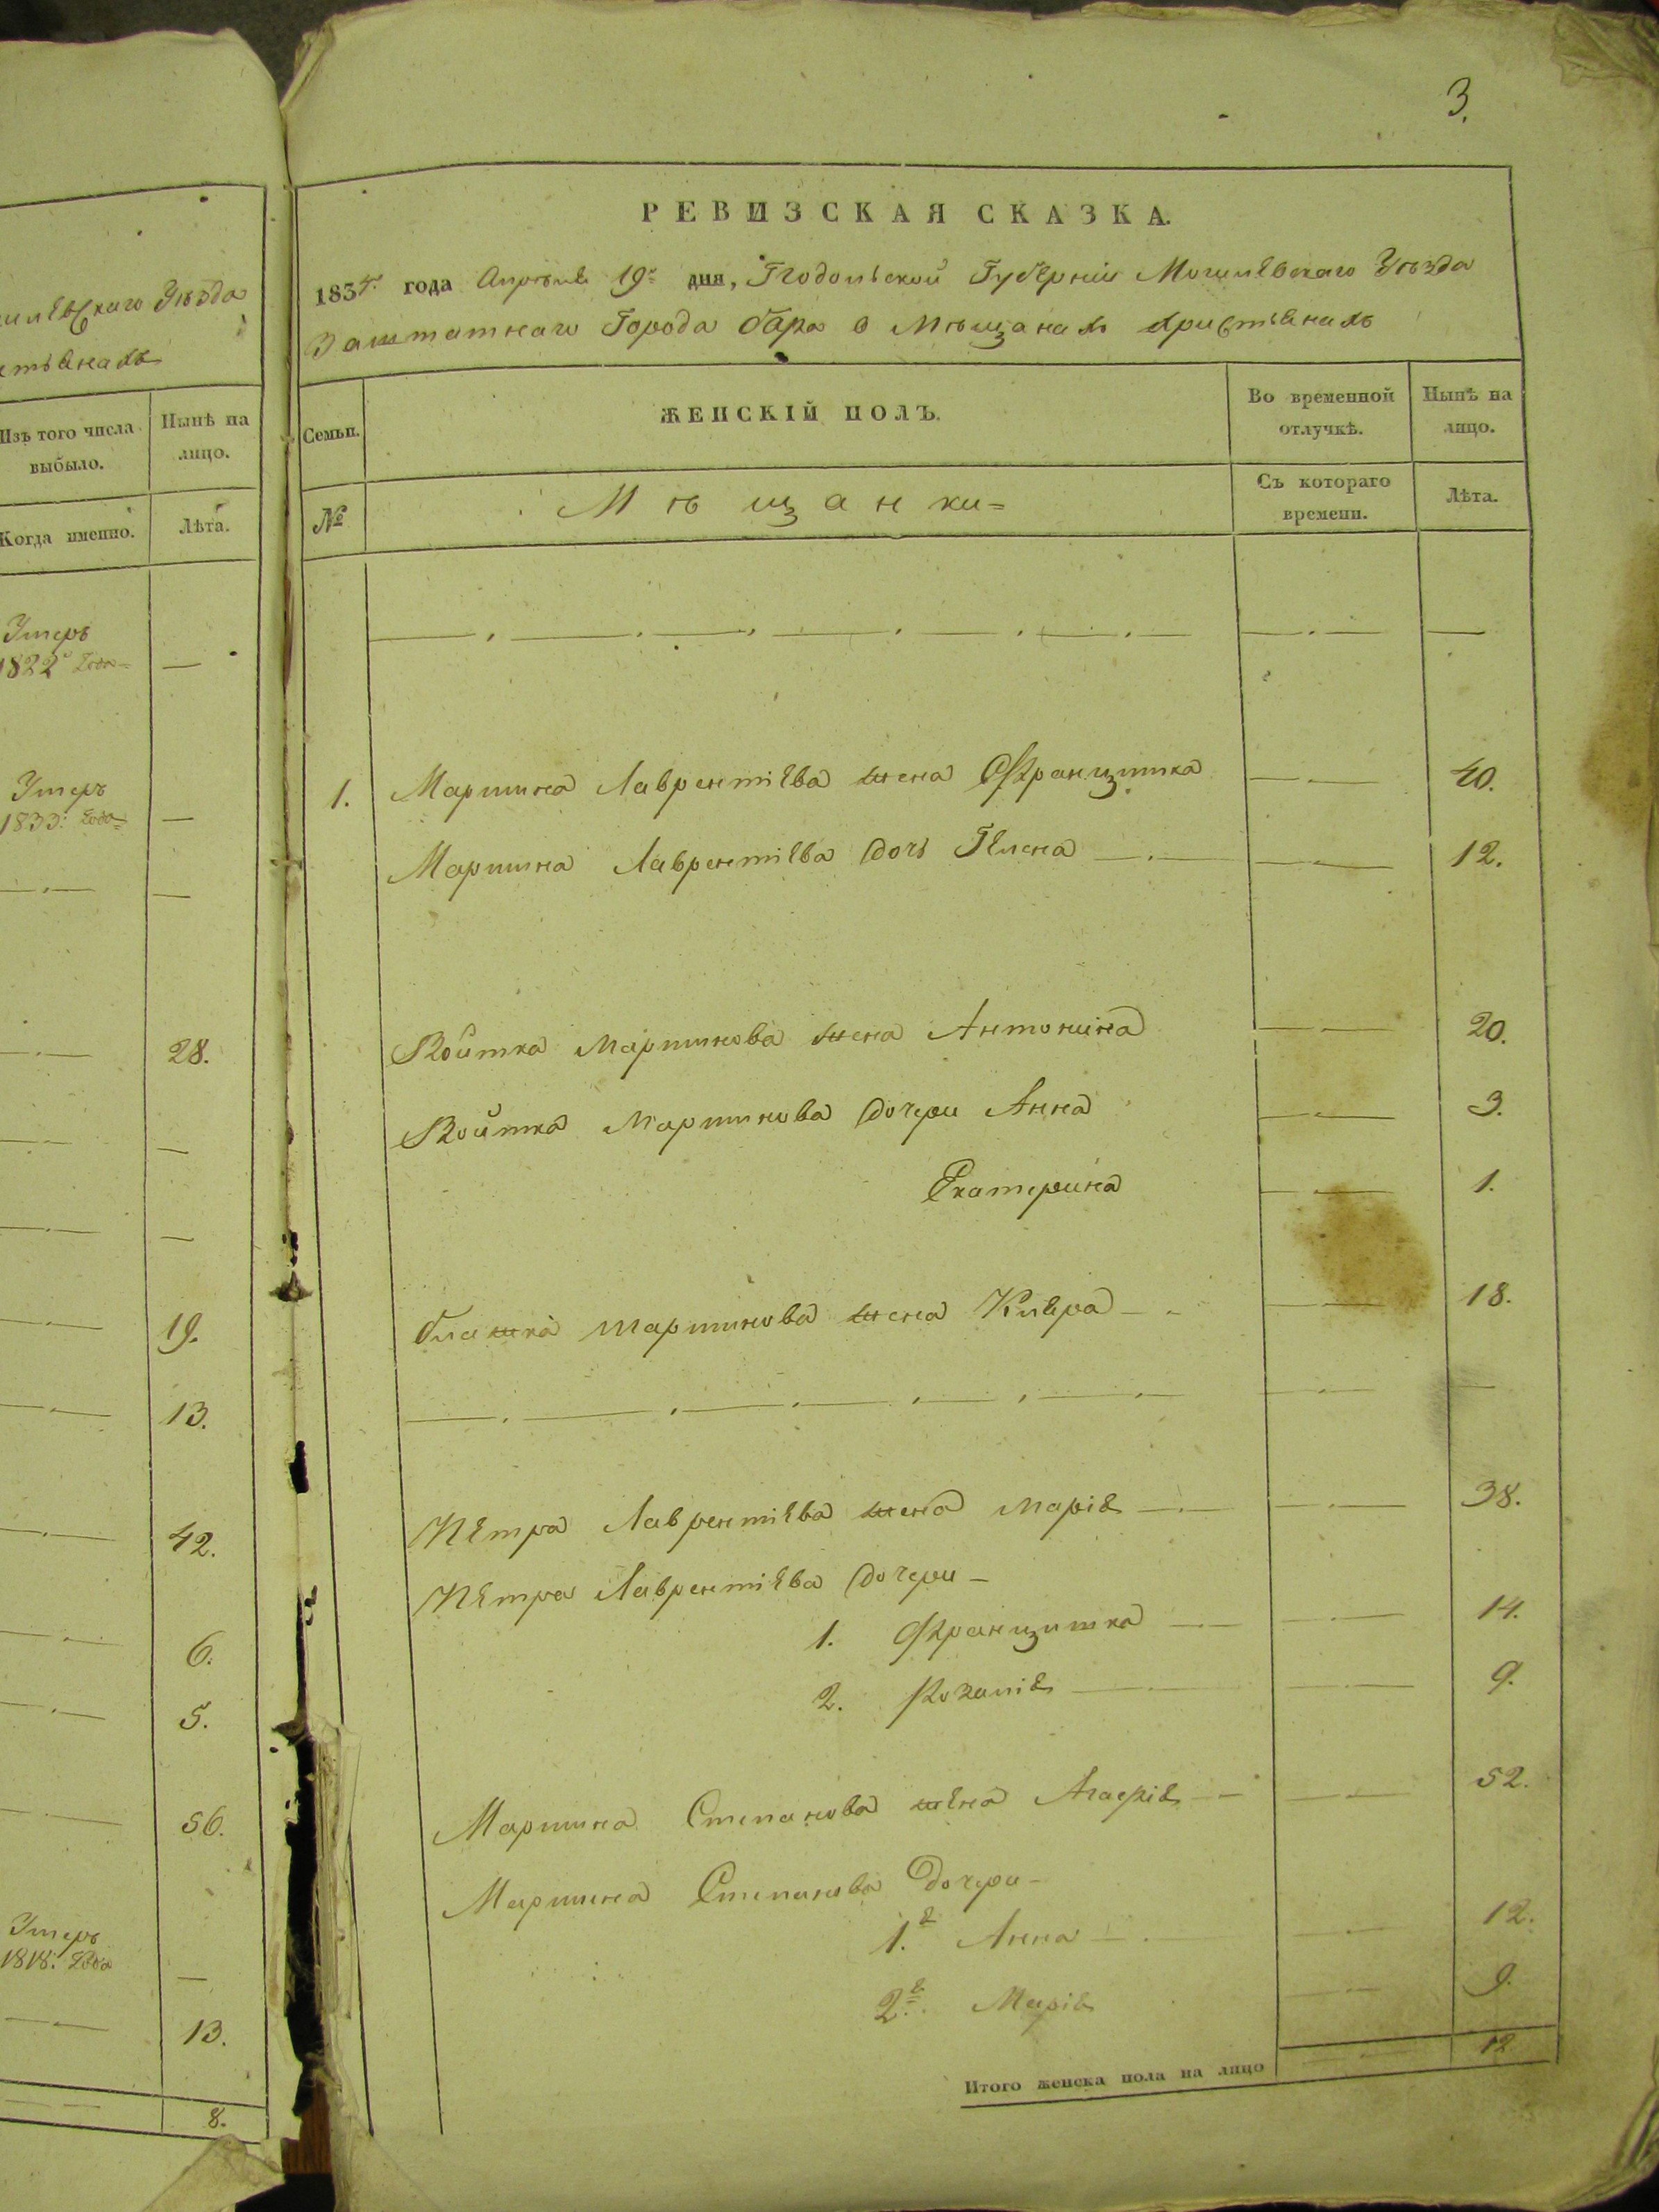 3.
илевскаго Уезда
Изъ того числа выбыло.
Нынѣ на лицо.
Когда именно.
Лѣта.
Умеръ
1822 года
—
Умеръ
1833: года
—
28.
19.
13.
42.
6.
5.
56.
Умеръ
1818: года
—
13.
8.
РЕВИЗСКАЯ СКАЗКА.
года Апреля 19 дня, Подольской Губерніи Могилевскаго Уѣзда
Заштатнаго Города Бара о Мѣщанахъ христіянахъ
Семьи.
ЖЕНСКІЙ ПОЛЪ.
Во временной отлучкѣ.
Нынѣ на лицо.
№
Мѣщанки=
Съ котораго времени.
Лѣта.
1. Мартина Лаврентіева жена Францишка 40.
Мартина Лаврентіева дочь 12.
Войтка Мартинова жена Антонина 20.
Войтка Мартинова дочери Анна 3.
Екатерина 1.
Блашка Мартинова жена Клара 18.
Петра Лаврентіева жена Марія 38.
Петра Лаврентіева дочери
1. Францишка 14.
2. Розалія 9.
Мартина Степанова жена Агафія 52.
Мартина Степанова дочери
1.я Анна 12.
2.я Марія 9.
Итого женска пола на лицо 12